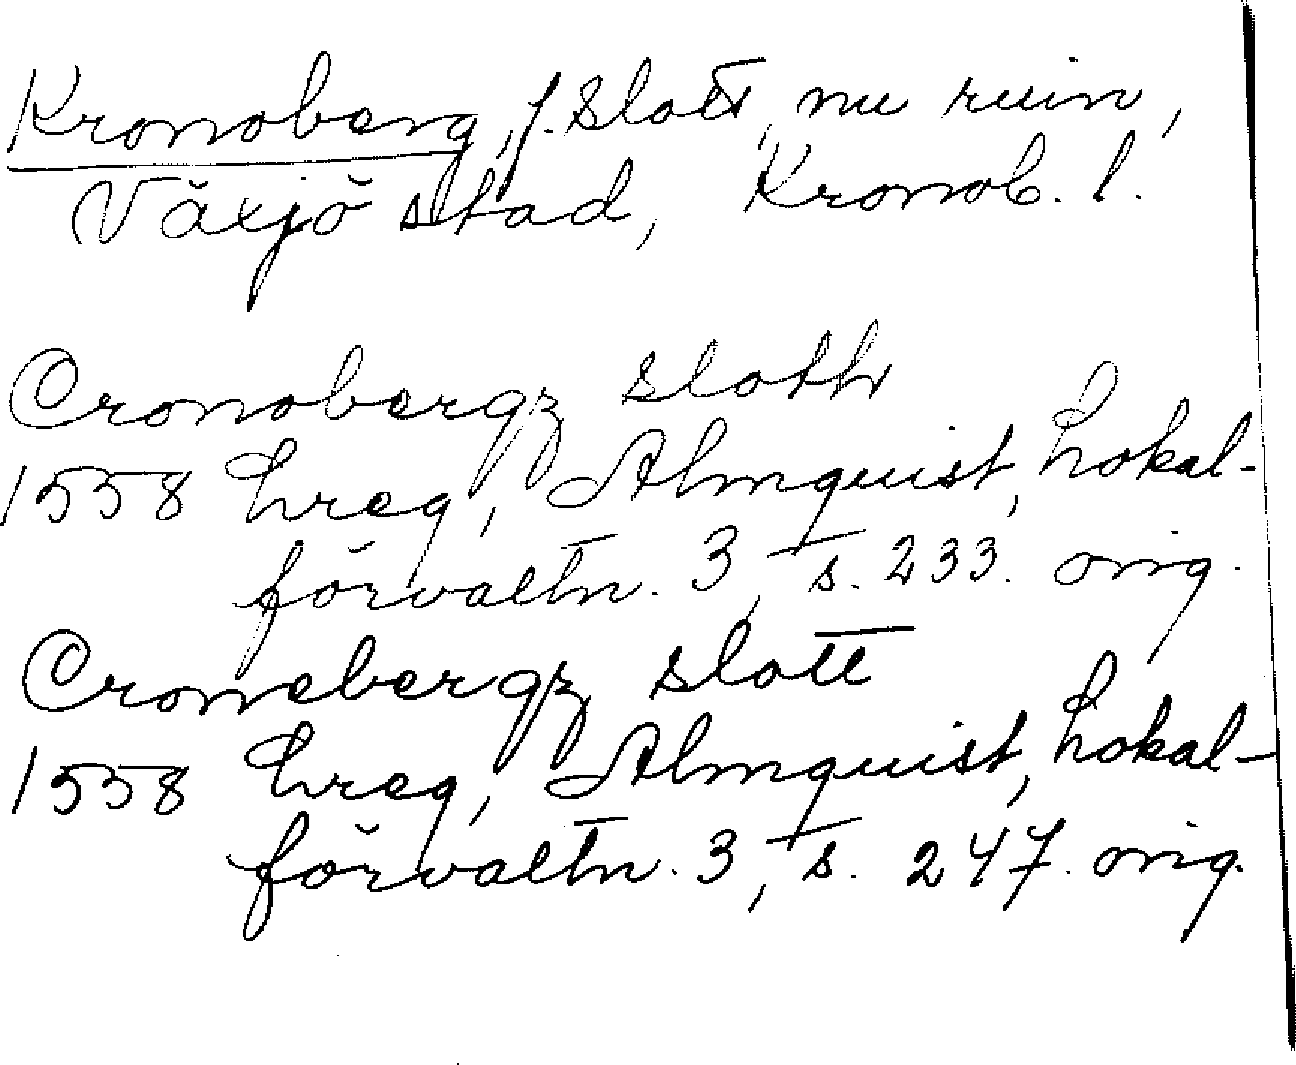 Kronoberg, f. slott, nu ruin,
Växjö stad, Kronob. l.
Cronobergz sloth
1558 Lreg, Almquist, Lokal-
förvaltn. 3, s. 233. orig.
Cronebergz slott
1558 Lreg, Almquist, Lokal-
förvaltn. 3, s. 247. orig.